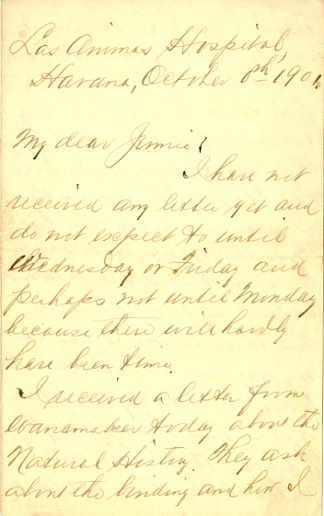 Las Animas Hospital,
Havana, October 8th 1901.
My dear Jennie:
I have not
received any letter yet and
do not expect to until
Wednesday or Friday and
perhaps not until Monday
because there will hardly
have been time.
I received a letter from
Wanamaker today about the
Natural History. They ask
about the binding and how I